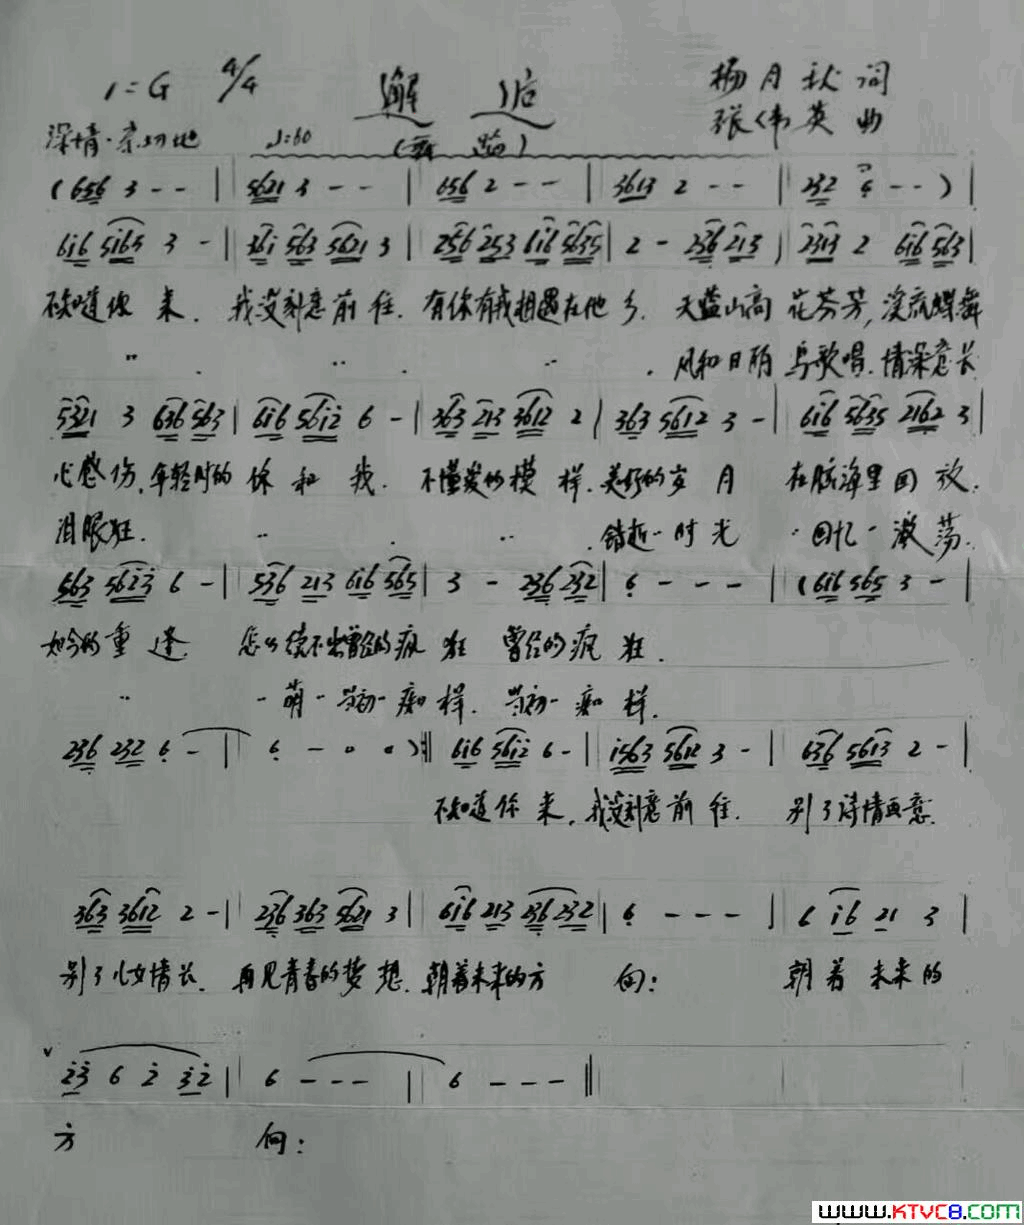 1=G 4/4 邂逅 杨月秋 词
张伟英 曲
深情·亲切地 ♩=60
(656 3 - - | 5621 3 - - | 656 2 - - | 3613 2 - - | 232 6 - - ) |
6i6 5i65 3 - | 36i 563 5621 3 | 256 253 6i6 5635 | 2 - 236 213 | 2313 2 6i6 563 |
不知道你来. 我没刻意前往. 有你有我相遇在他乡. 天蓝山高花芬芳,
" .. .. .. . 风和日丽鸟歌唱. 情深意长
5321 3 636 563 | 6i6 56i2 6 - | 363 213 3612 2 | 363 5612 3 - | 6i6 5635 2162 3 |
心感伤. 年轻时的你和我. 不懂爱的模样. 美好的岁月 在脑海里回放.
泪眼狂. .. .. .. . 时光 · 回忆 - 激荡.
563 56i2i 6 - | 536 213 6i6 565 | 3 - 236 232 | 6 - - - | (6i6 565 3 - |
如今的重逢 怎么续不出曾经的疯狂 曾经的疯狂.
.. - 萌 - 当初 - 痴样. 当初 - 痴样.
236 232 6 - | 6 - 0 0 ) :‖ 6i6 56i2 6 - | i563 5612 3 - | 636 5613 2 - |
不知道你来. 我没刻意前往. 别了诗情画意.
363 3612 2 - | 236 363 5621 3 | 6i6 213 236 232 | 6 - - - | 6 i6 21 3 |
别了儿女情长. 再见青春的梦想. 朝着未来的方向: 朝着未来的
v 23 6 2 32 | 6 - - - | 6 - - - ‖
方 向:
www.KTVC8.com